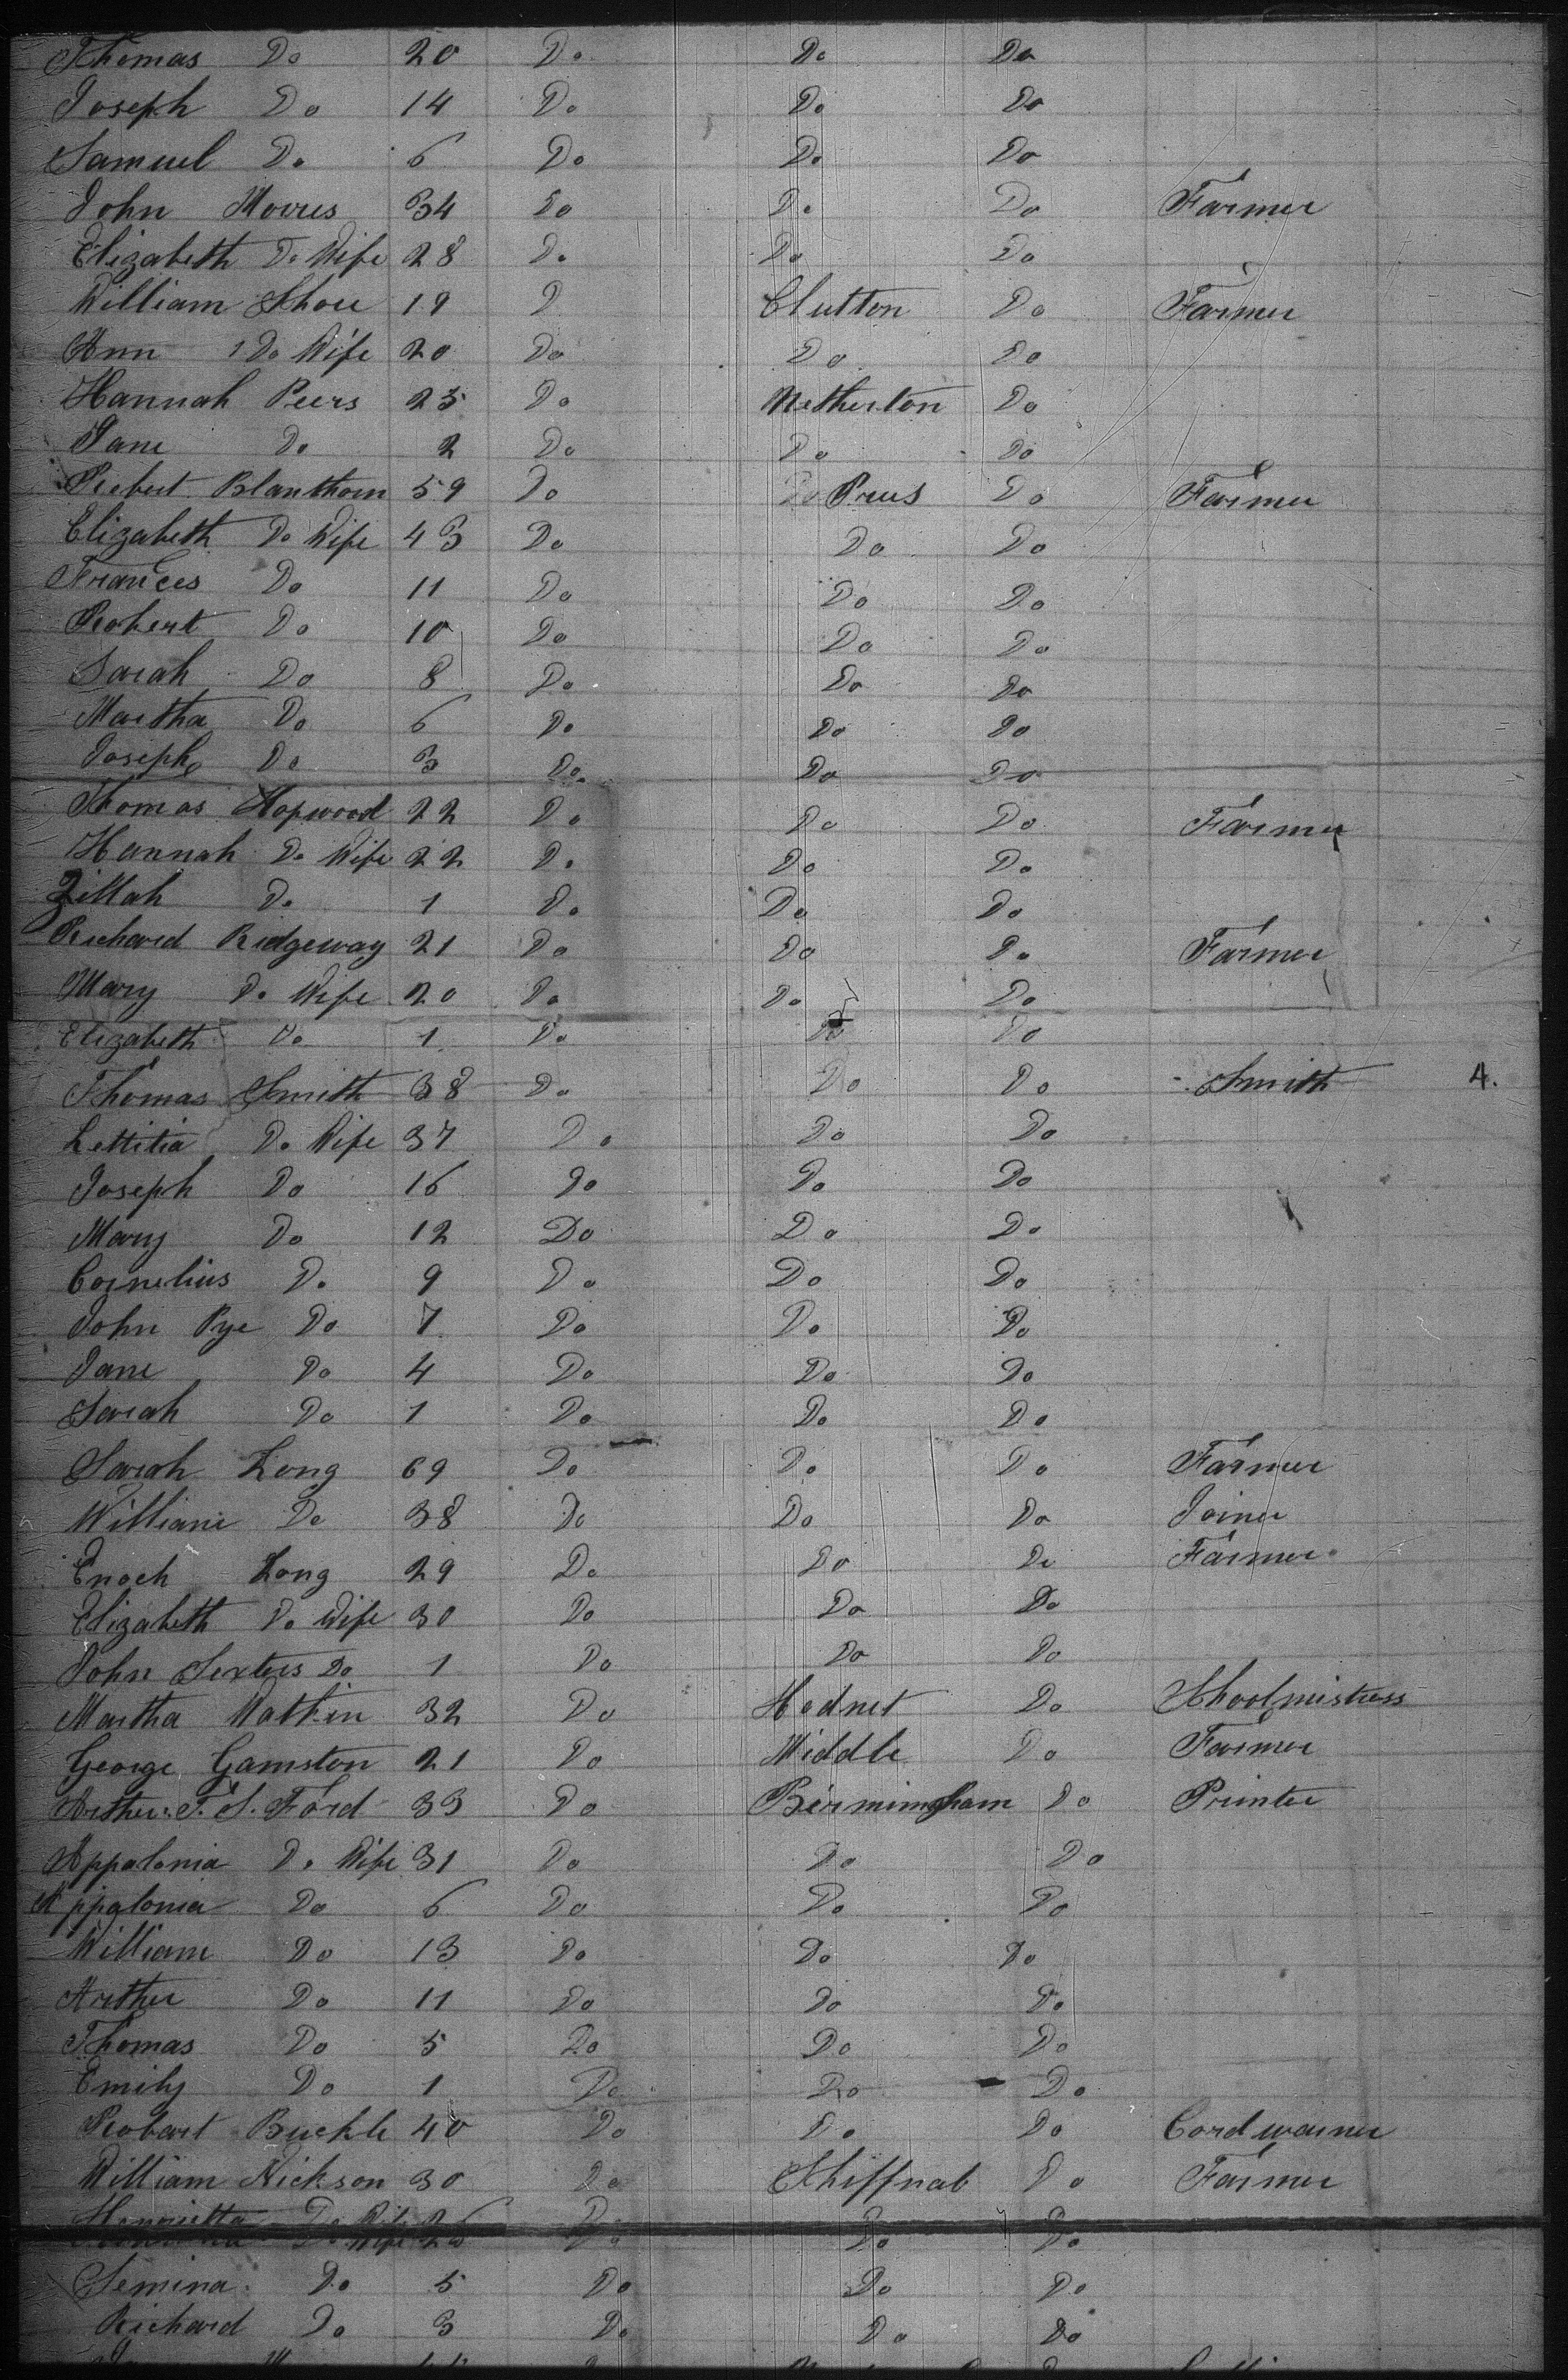 Thomas Do 20 Do Do Do
Joseph Do 14 Do Do Do
Samuel Do 6 Do Do Do
John Morris 34 Do Do Do Farmer
Elizabeth Do Wife 28 Do Do Do
William Shore 19 D Clutton Do Farmer
Ann Do Wife 20 Do Do Do
Hannah Peers 25 Do Netherton Do
Jane Do 2 Do Do Do
Robert Blanthorn 59 Do Do Prees Do Farmer
Elizabeth Do Wife 43 Do Do Do
Frances Do 11 Do Do Do
Robert Do 10 Do Do Do
Sarah Do 8 Do Do Do
Martha Do 6 Do Do Do
Joseph Do 3 Do Do Do
Thomas Hopwood 22 Do Do Do Farmer
Hannah Do Wife 22 Do Do Do
Zillah Do 1 Do Do Do
Richard Ridgeway 21 Do Do Do Farmer
Mary Do Wife 20 Do Do Do
Elizabeth Do 1 Do Do Do
Thomas Smith 38 Do Do Do Smith 4.
Lettitia Do Wife 37 Do Do Do
Joseph Do 16 Do Do Do
Mary Do 12 Do Do Do
Cornelius Do 9 Do Do Do
John Pye Do 7 Do Do Do
Jane Do 4 Do Do Do
Sarah Do 1 Do Do Do
Sarah Long 69 Do Do Do Farmer
William Do 38 Do Do Do Joiner
Enoch Long 29 Do Do Do Farmer
Elizabeth Do Wife 30 Do Do Do
John Sexters Do 1 Do Do Do
Martha Watkin 32 Do Hodnet Do Schoolmistress
George Gamston 21 Do Middle Do Farmer
Arther. T. S. Ford 33 Do Birmimgham Do Printer
Appolonia Do Wife 31 Do Do Do
Appolonia Do 6 Do Do Do
William Do 13 Do Do Do
Arther Do 11 Do Do Do
Thomas Do 5 Do Do Do
Emily Do 1 Do Do Do
Robart Buckle 40 Do Do Do Cordwainer
William Hickson 30 Do Shiffnal Do Farmer
Henrietta Do Wife 26 Do Do Do
Semina Do 5 Do Do Do
Richard Do 3 Do Do Do